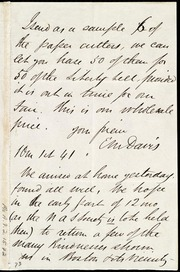 I send as a sample 6 of
the paper cutters, we can
let you have 50 of them for
50 of the Liberty bell, provided
it is out in time for our
Fair. This is our wholesale
price. your friend
E M Davis
10 m 1st 41
We arrived at home yesterday
found all well, We hope
in the early part of 12 mo,
as the N A S Society is to be held
then) to return a few of the
many kindnesses shown
us in Boston &